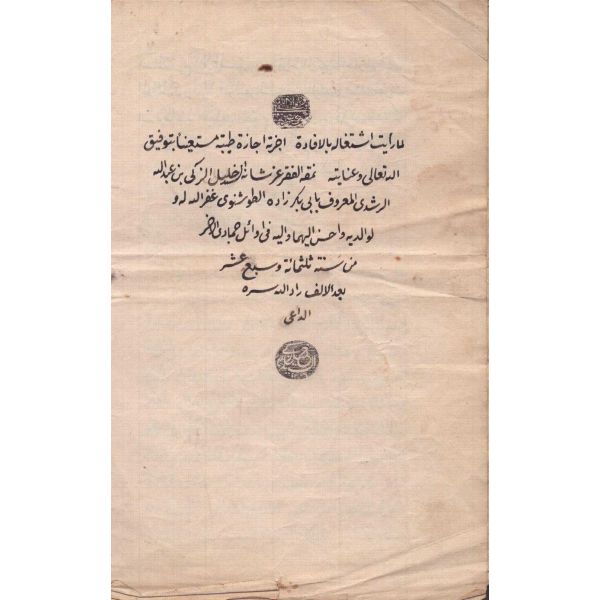 لما رأيت اشتغاله بالافادة اجزته اجازة طيبة مستعينا بتوفيق
الله تعالى وعنايته نمقه الفقير عز شانه خليل الزكى بن عبدالله
الرشدى المعروف بابى بكر زاده الطوشنوى غفر الله له و
لوالديه واحسن اليهما واليه فى اوائل جمادى الاخر
من سنة ثلثمائة وسبع عشر
بعد الالف زاد الله سره
الداعى